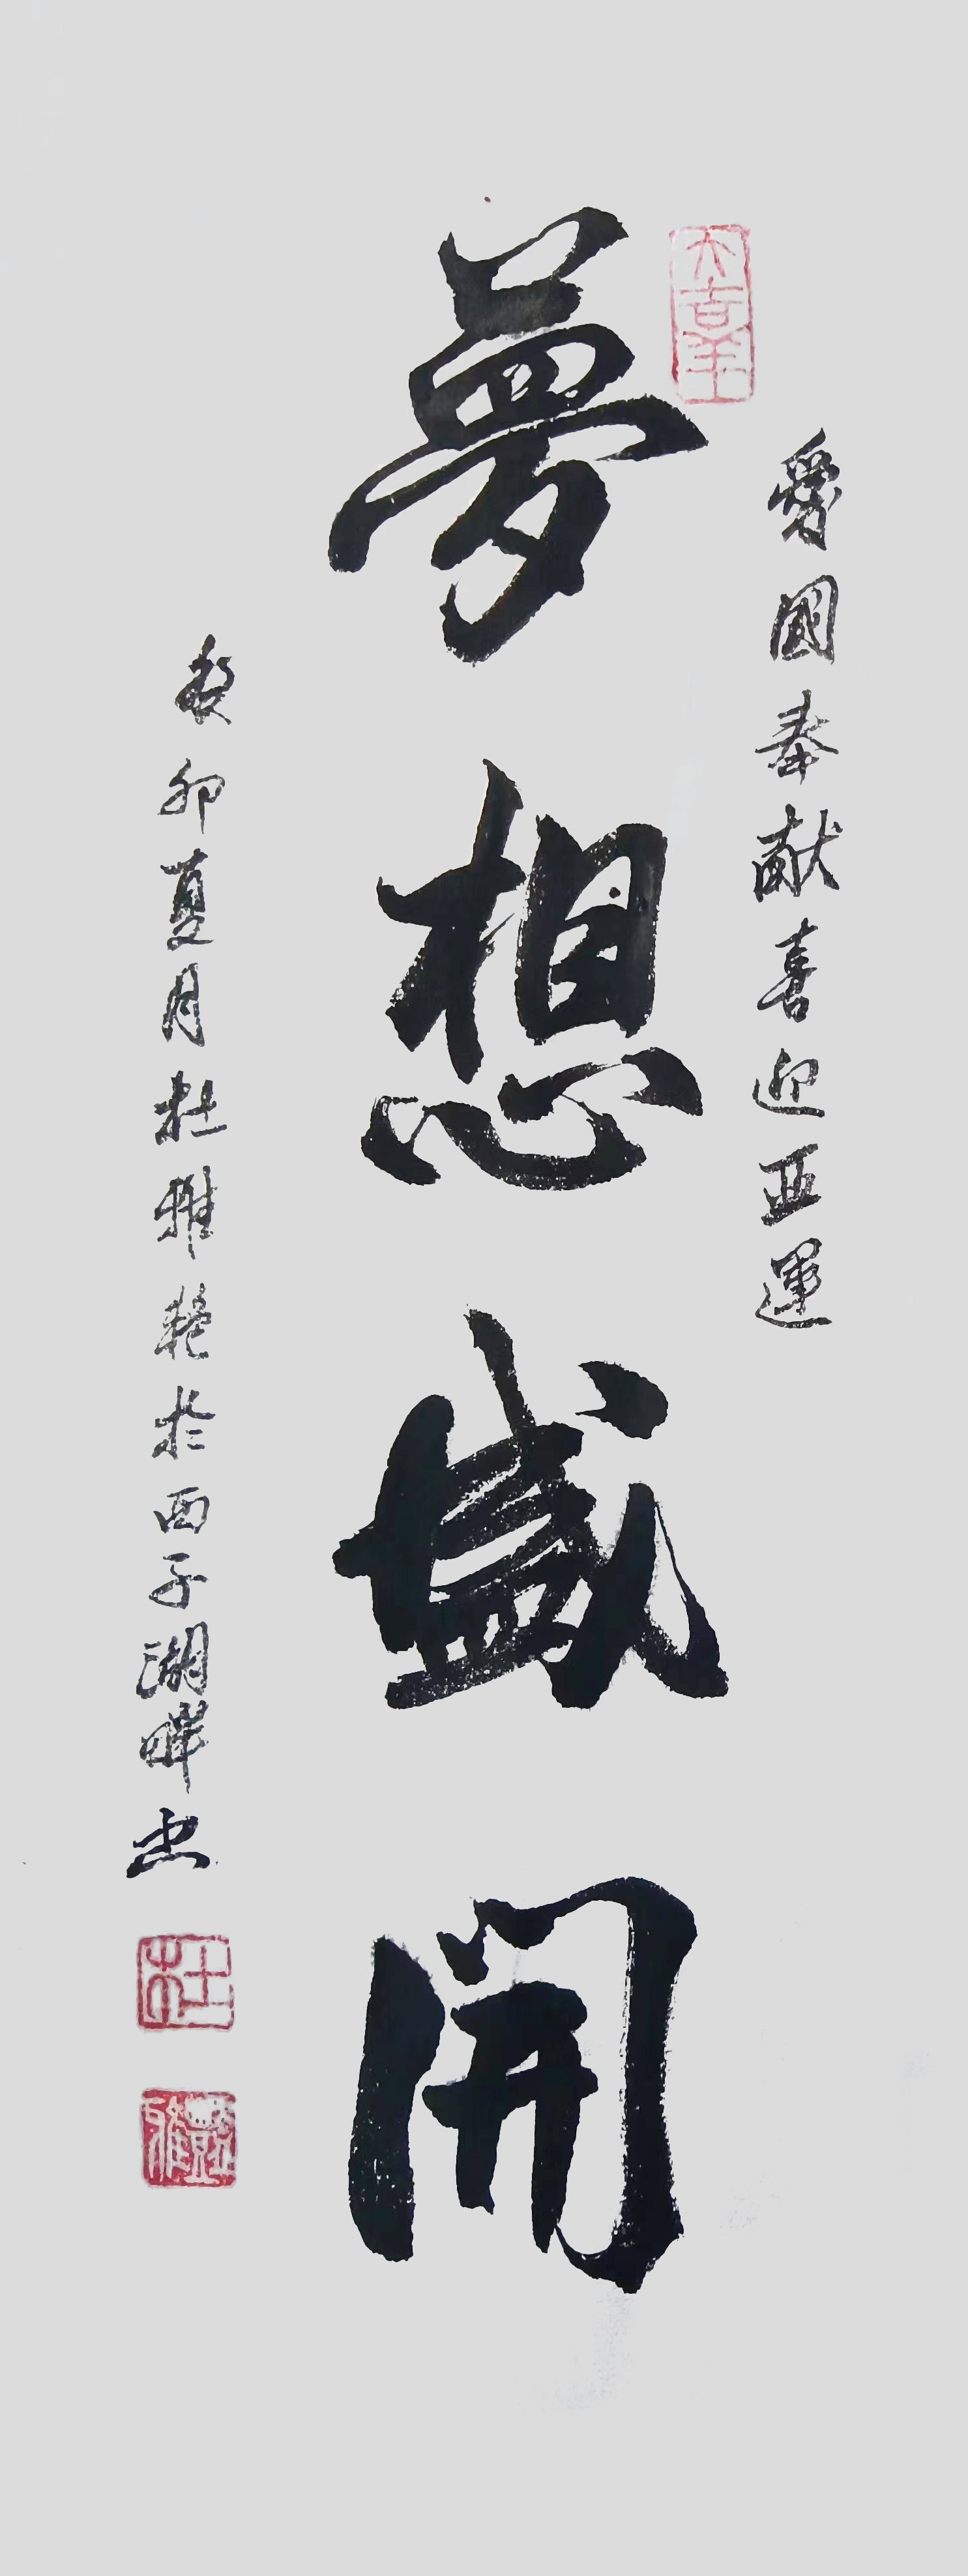 大吉羊
愛國奉献喜迎亚運
夢想盛開
癸卯夏月杜雅艳於西子湖畔書
杜
雅艷